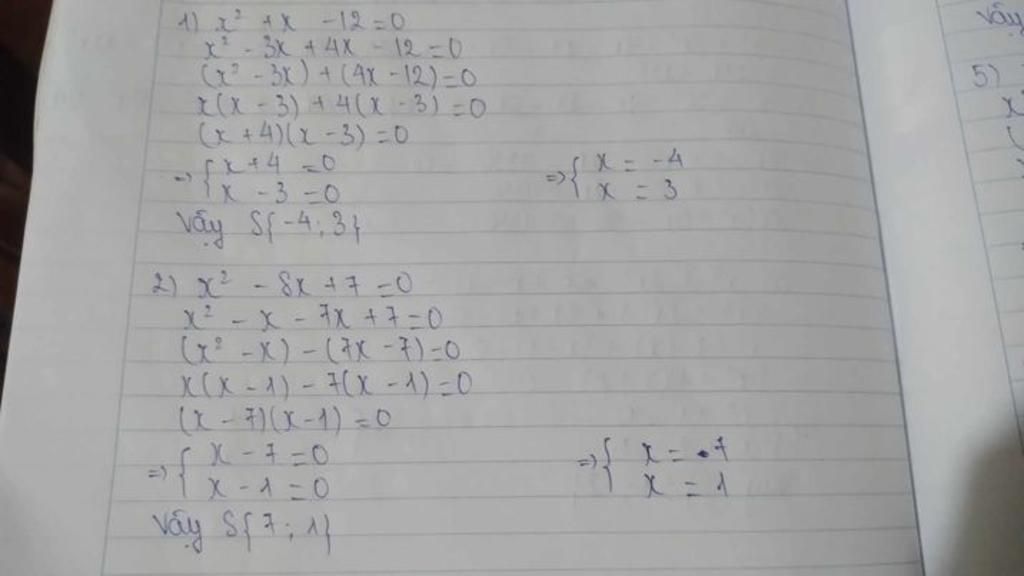 1) x² + x - 12 = 0
x² - 3x + 4x - 12 = 0
(x² - 3x) + (4x - 12) = 0
x(x - 3) + 4(x - 3) = 0
(x + 4)(x - 3) = 0
=> { x + 4 = 0 => { x = -4
x - 3 = 0 x = 3
Vậy S{-4; 3}
2) x² - 8x + 7 = 0
x² - x - 7x + 7 = 0
(x² - x) - (7x - 7) = 0
x(x - 1) - 7(x - 1) = 0
(x - 7)(x - 1) = 0
=> { x - 7 = 0 => { x = 7
x - 1 = 0 x = 1
Vậy S{7; 1}
Vậy
5)